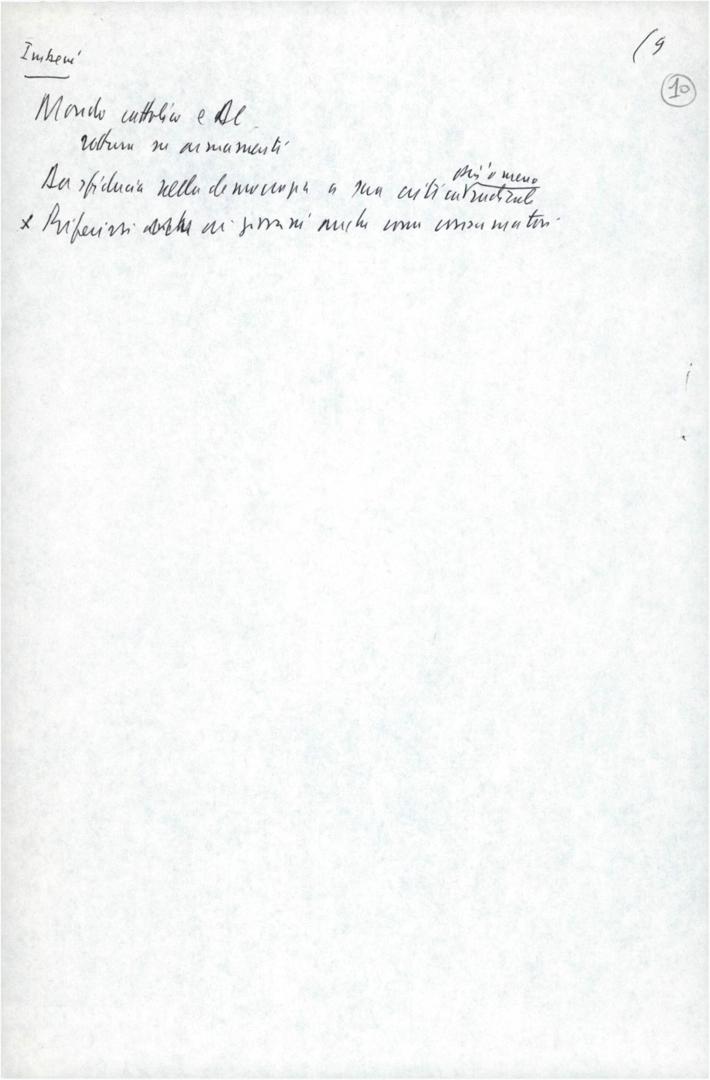 (9
10
Imbeni
Mondo cattolico e DC
rottura su armamenti
Da sfiducia nella democrazia a sua critica più o meno radicale
x Riferirsi anche ai giovani anche come consumatori